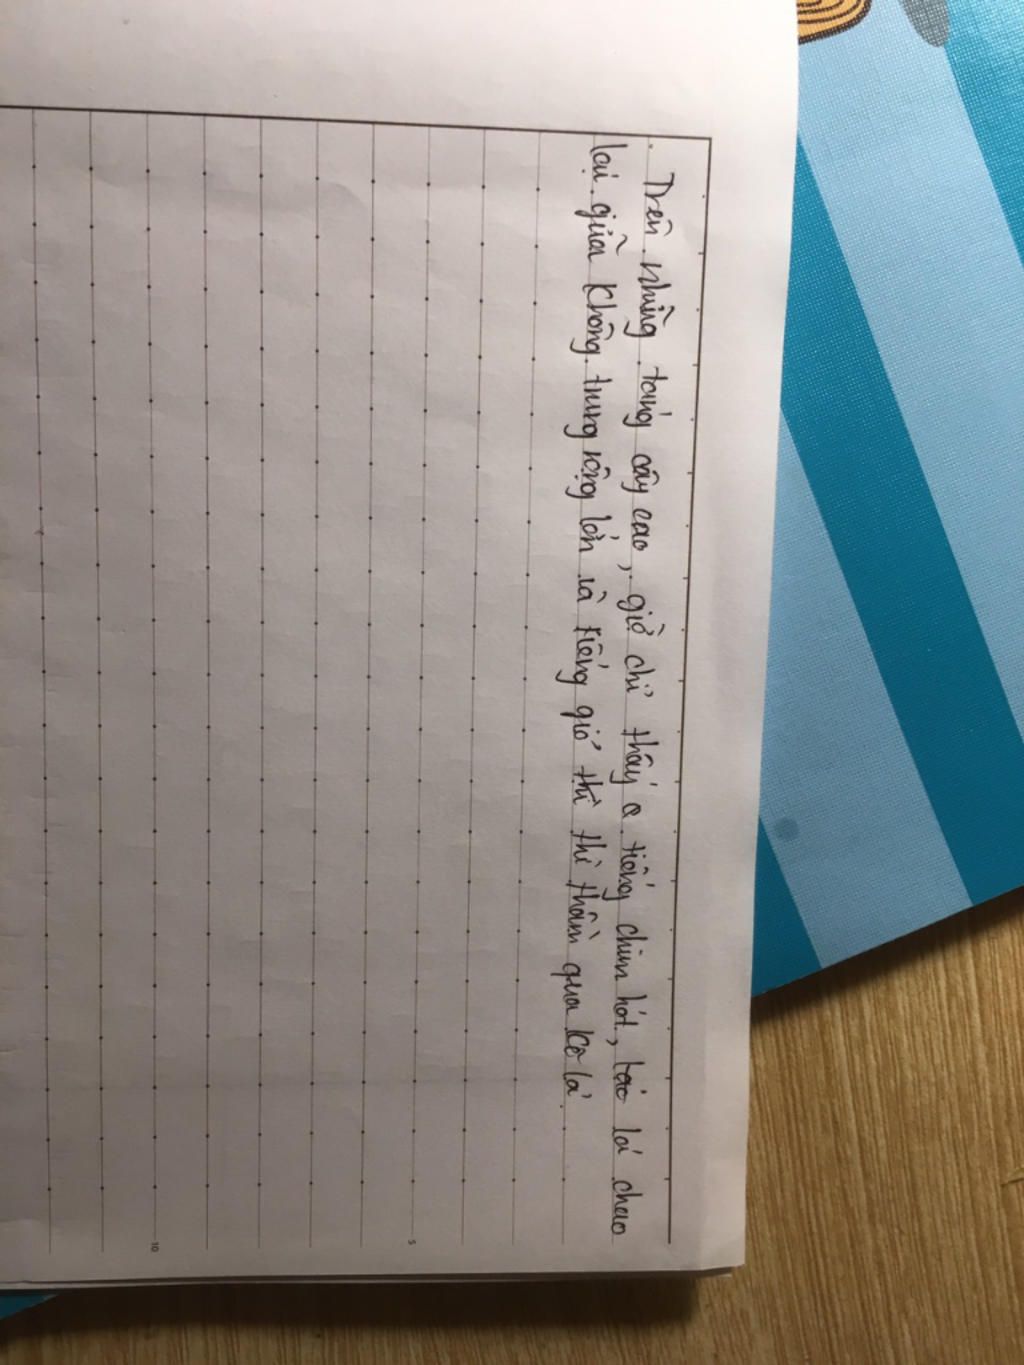 Trên những tang cây cao, giờ chỉ thấy a tiếng chim hót, táo lá chao
lại giữa không trung rộng lớn và tiếng gió thì thì thầm qua kẽ lá.
5
10